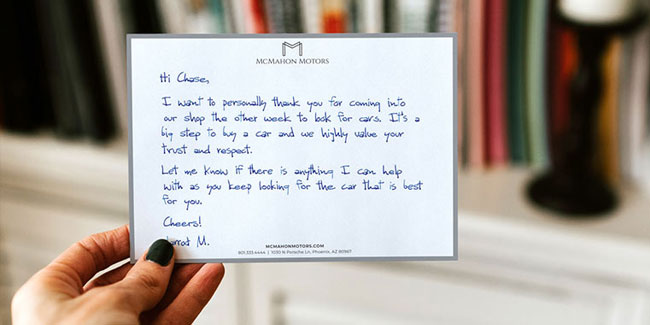 M
MCMAHON MOTORS
Hi Chase,
I want to personally thank you for coming into
our shop the other week to look for cars. It's a
big step to buy a car and we highly value your
trust and respect.
Let me know if there is anything I can help
with as you keep looking for the car that is best
for you.
Cheers!
M.
MCMAHONMOTORS.COM
801.333.4444 | 1030 N Porsche Ln, Phoenix, AZ 80967